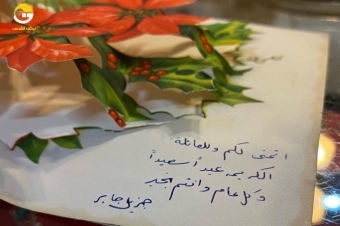 اتمنى لكم وللعائلة
الكريمه عيداً سعيداً
وكل عام وانتم بخير
جزيل جابر